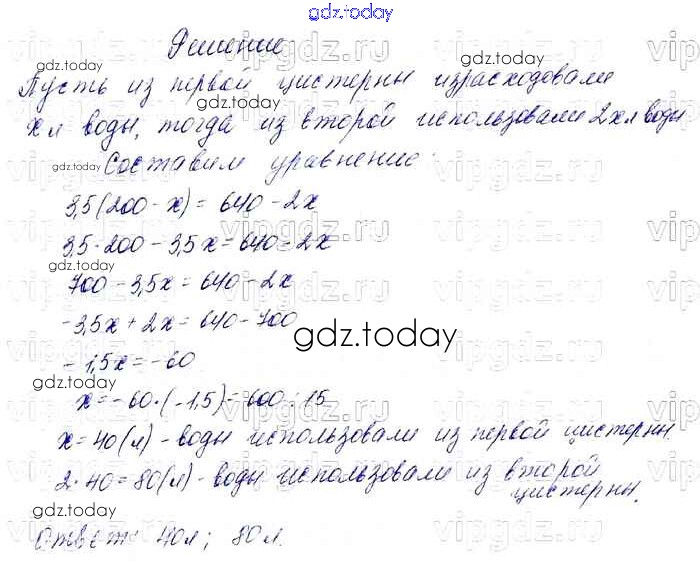 gdz.today
Решение
gdz.today
Пусть из первой цистерны израсходовали
gdz.today
x л воды, тогда из второй использовали 2x л воды
gdz.today
Составим уравнение:
3,5(200 - x) = 640 - 2x
3,5·200 - 3,5x = 640 - 2x
gdz.today
700 - 3,5x = 640 - 2x
-3,5x + 2x = 640 - 700
gdz.today
gdz.today
-1,5x = -60
gdz.today
x = -60·(-1,5) = 600 : 15
x = 40(л) - воды использовали из первой цистерны.
gdz.today
2·40 = 80(л) - воды использовали из второй
цистерны.
gdz.today
Ответ: 40л; 80л.
vipgdz.ru